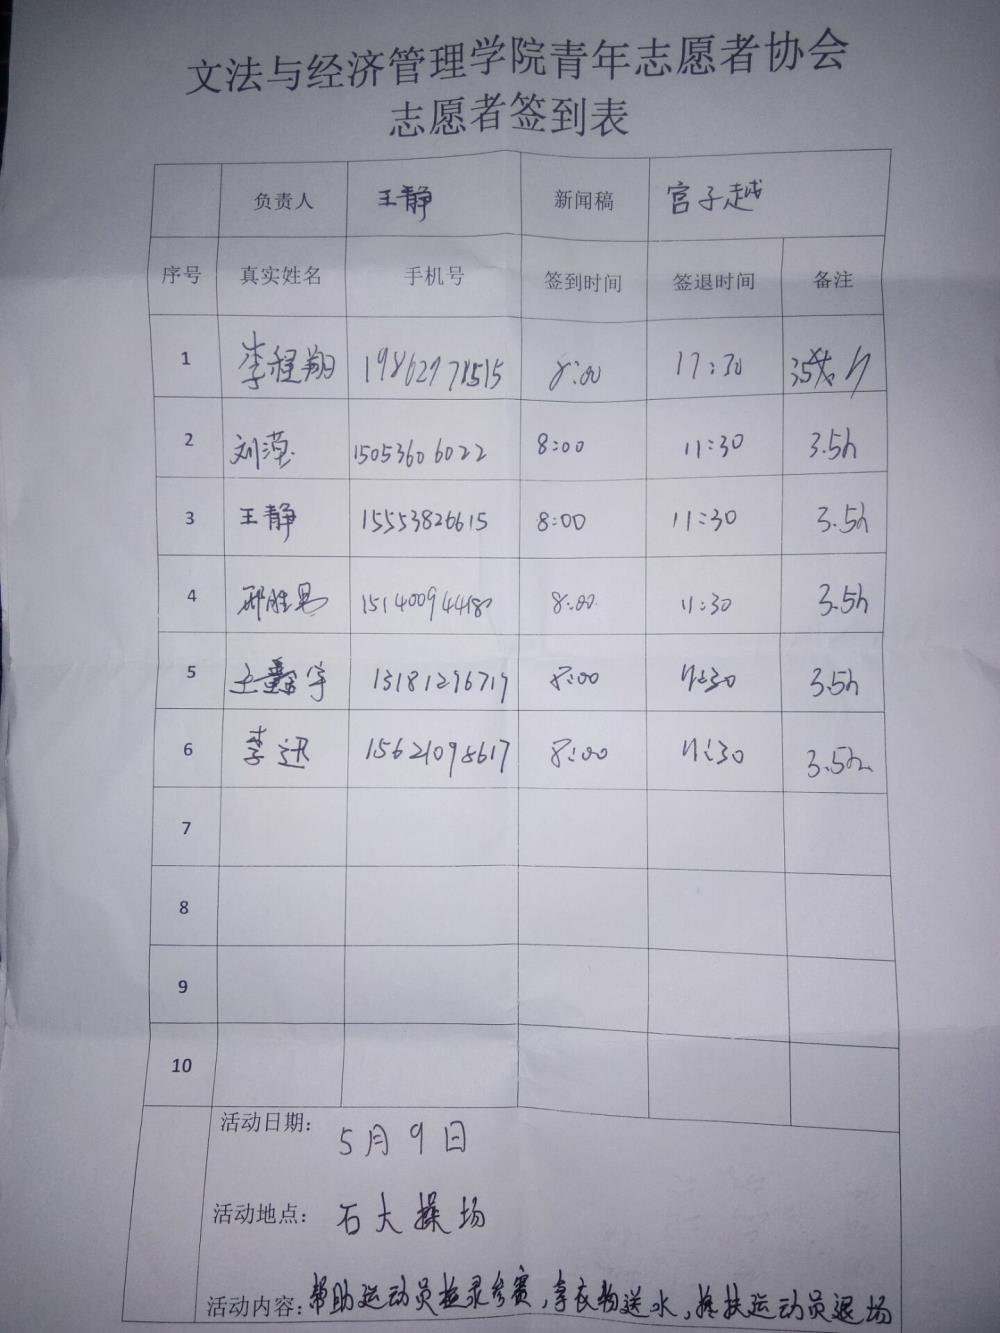 文法与经济管理学院青年志愿者协会
志愿者签到表
负责人 王静 新闻稿 宫子越
序号 真实姓名 手机号 签到时间 签退时间 备注
1 李程翔 19862978515 8:00 17:30
2 刘滢 15053606022 8:00 11:30 3.5h
3 王静 15553826615 8:00 11:30 3.5h
4 邢胜易 15140094418 8:00 11:30 3.5h
5 王鑫宇 13181296719 8:00 11:30 3.5h
6 李迅 15621098617 8:00 11:30 3.5h
7
8
9
10
活动日期: 5月9日
活动地点: 石大操场
活动内容: 帮助运动员检录参赛,拿衣物送水,搀扶运动员退场